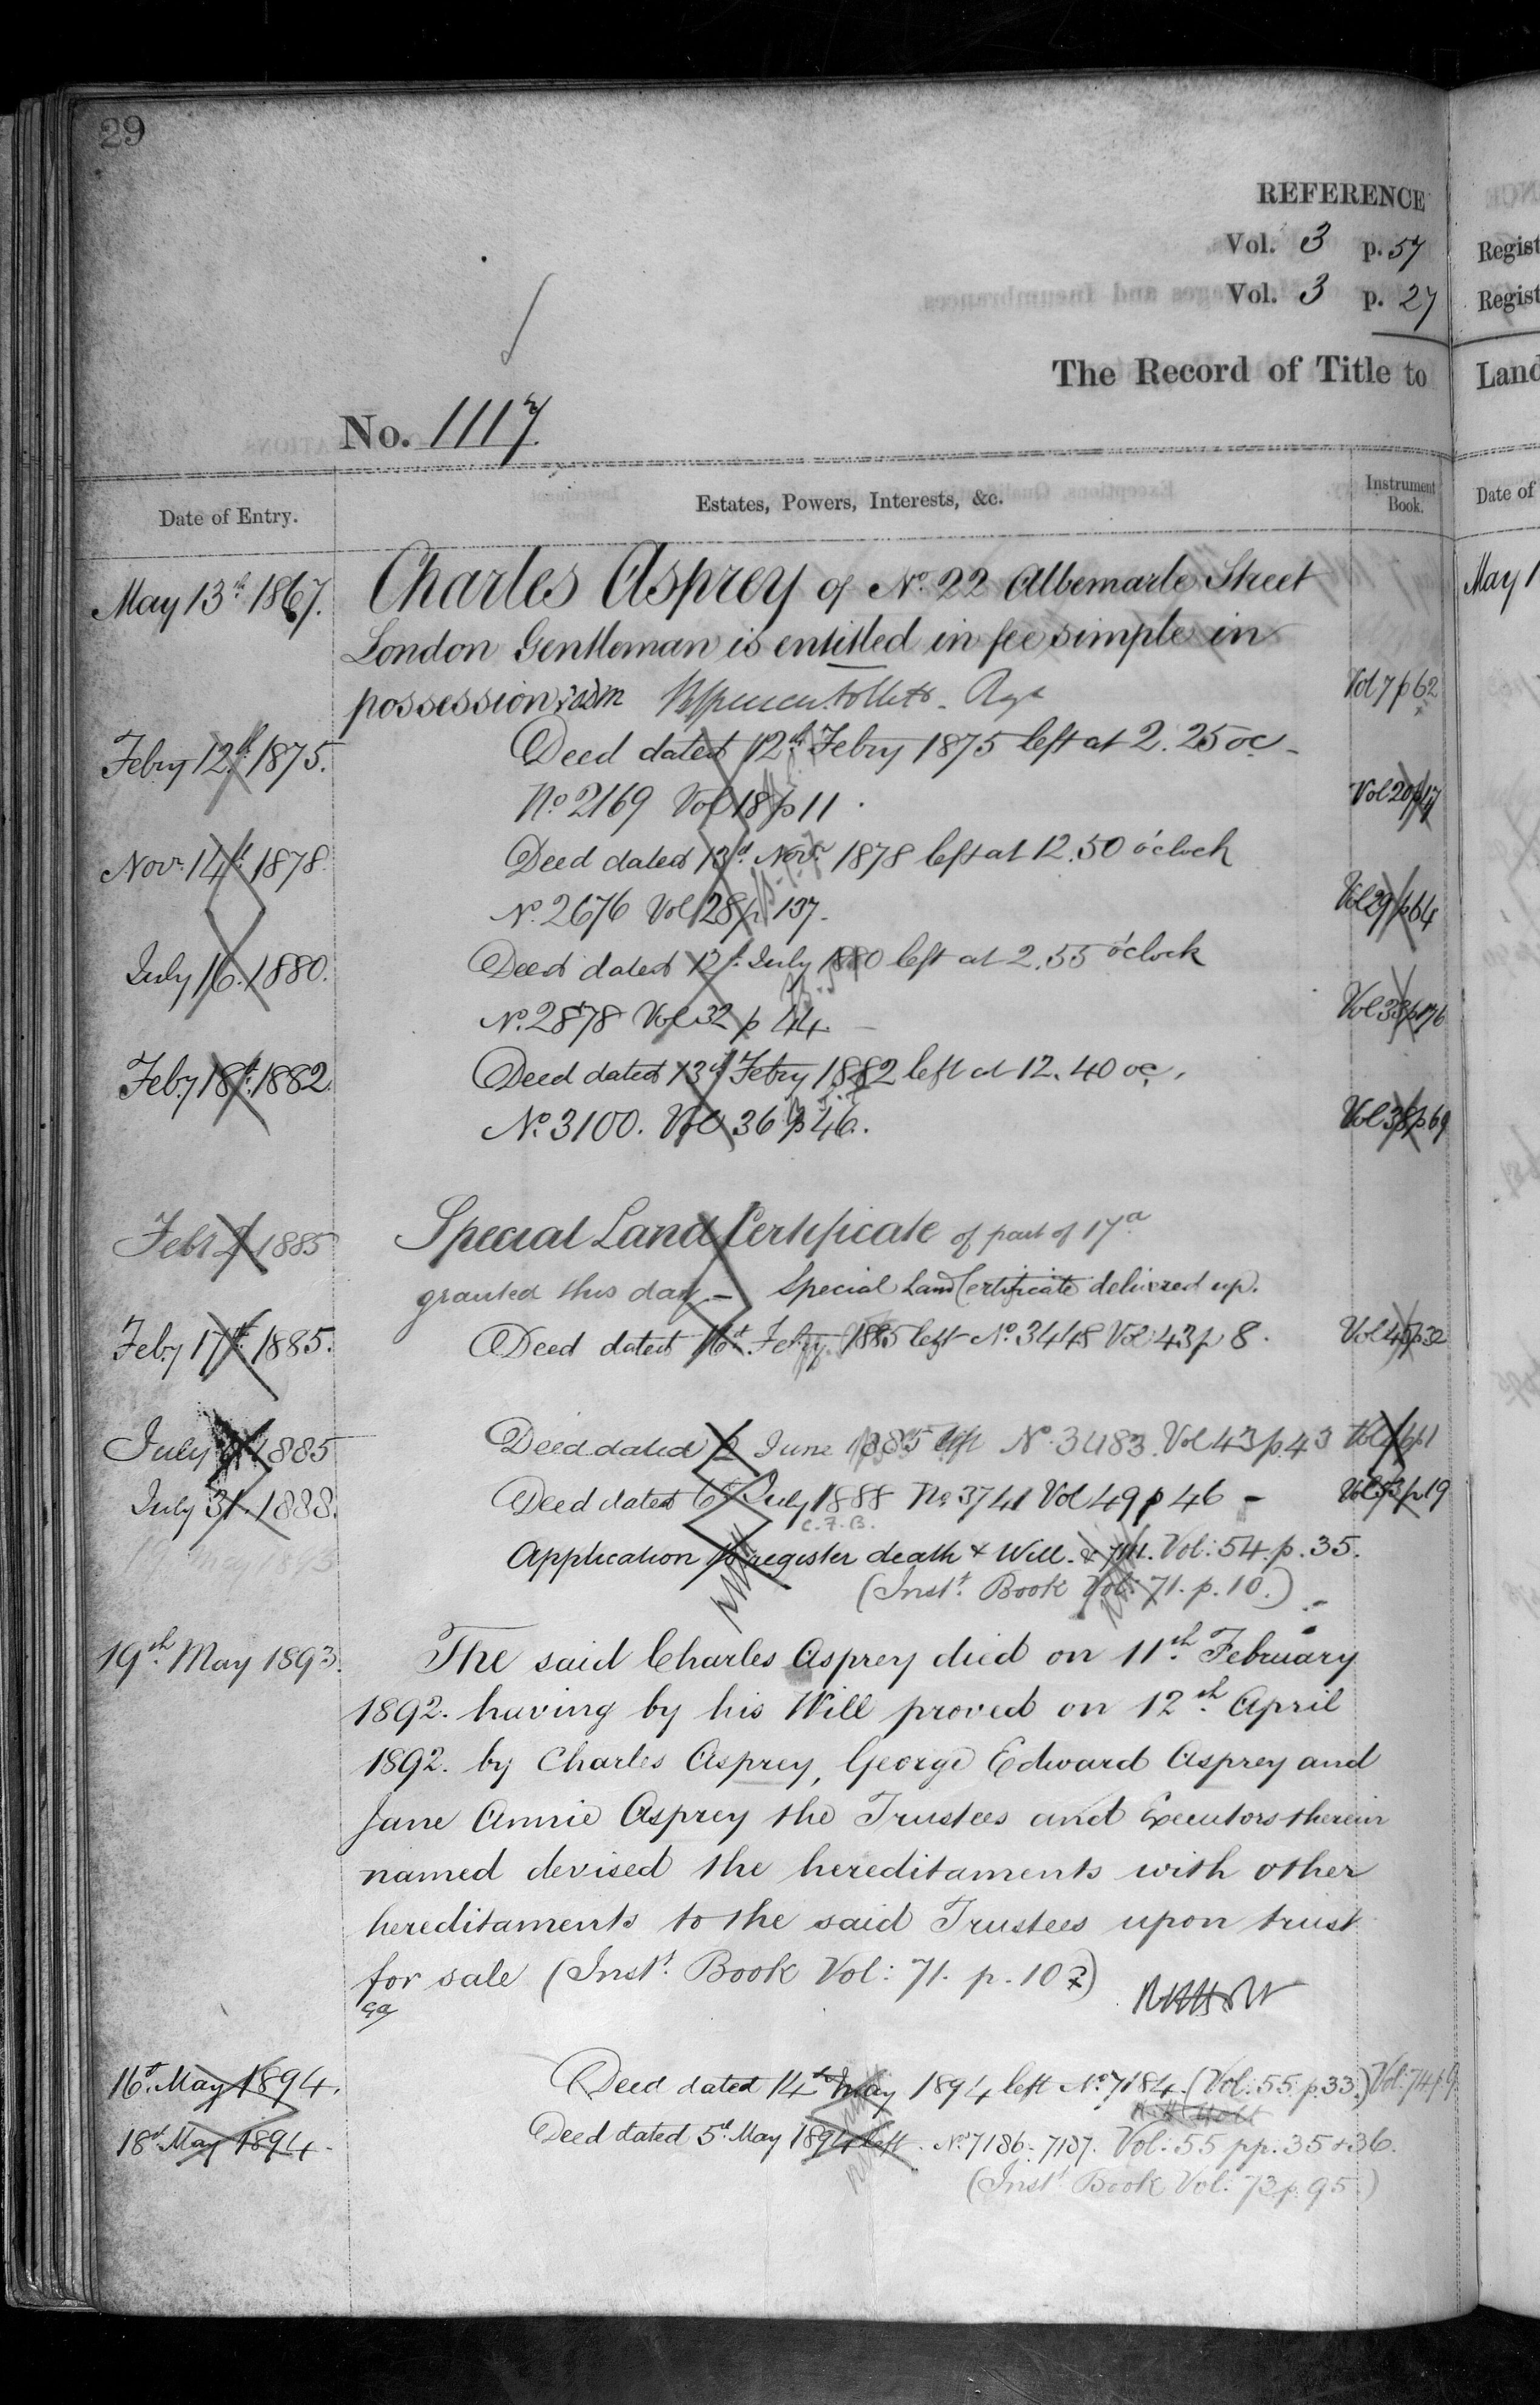 29
REFERENCE
Vol. 3 p. 57
Vol. 3 p. 27
The Record of Title to
No. 1117.
Date of Entry.
Estates, Powers, Interests, &c.
Instrument Book.
May 13th 1867.
Charles Asprey of No. 22 Albemarle Street
London Gentleman is entitled in fee simple in
possession
Vol 7 p 62
Febry 12th 1875.
Deed dated 12th Febry 1875 left at 2.25 oc -
No 2169 Vol 18 p 11.
Vol 20 p 17
Novr 14th 1878.
Deed dated 13th Novr 1878 left at 12.50 o'clock
No. 2676 Vol 28 p 137.
Vol 29 p 64
July 16. 1880.
Deed dated 12th July 1880 left at 2.55 o'clock
No. 2878 Vol 32 p 44
Vol 33 p 176
Feby 18th 1882.
Deed dated 13th Febry 1882 left at 12.40 oc.
No. 3100. Vol 36 p 46.
Vol 38 p 69
Feb 2 1885
Special Land Certificate of part of 17a
granted this day - Special Land Certificate delivered up.
Feby 17th 1885.
Deed dated 16th Febry 1885 left No. 3448 Vol 43 p 8.
Vol 45 p 32
July 1885
Deed dated June 1885 left No. 3483. Vol 43 p. 43
July 31. 1888.
Deed dated 6th July 1888 No 3741 Vol 49 p 46 -
Vol 53 p 19
C.F.B.
19 May 1893
Application to register death & Will. Vol: 54. p. 35.
(Instt. Book Vol: 71. p. 10.)
19th May 1893.
The said Charles Asprey died on 11th February
1892. having by his Will proved on 12th April
1892. by Charles Asprey, George Edward Asprey and
Jane Annie Asprey the Trustees and Executors therein
named devised the hereditaments with other
hereditaments to the said Trustees upon trust
for sale (Instt. Book Vol: 71. p. 10)
16th May 1894.
Deed dated 14th May 1894 left No. 7184. (Vol: 55. p. 33.) Vol: 74 p. 9
18th May 1894.
Deed dated 5th May 1894 left. No. 7186: 7187. Vol: 55 pp. 35 & 36.
(Instt Book Vol: 73 p. 95.)
Regist
Regist
Land
Date of
May 1